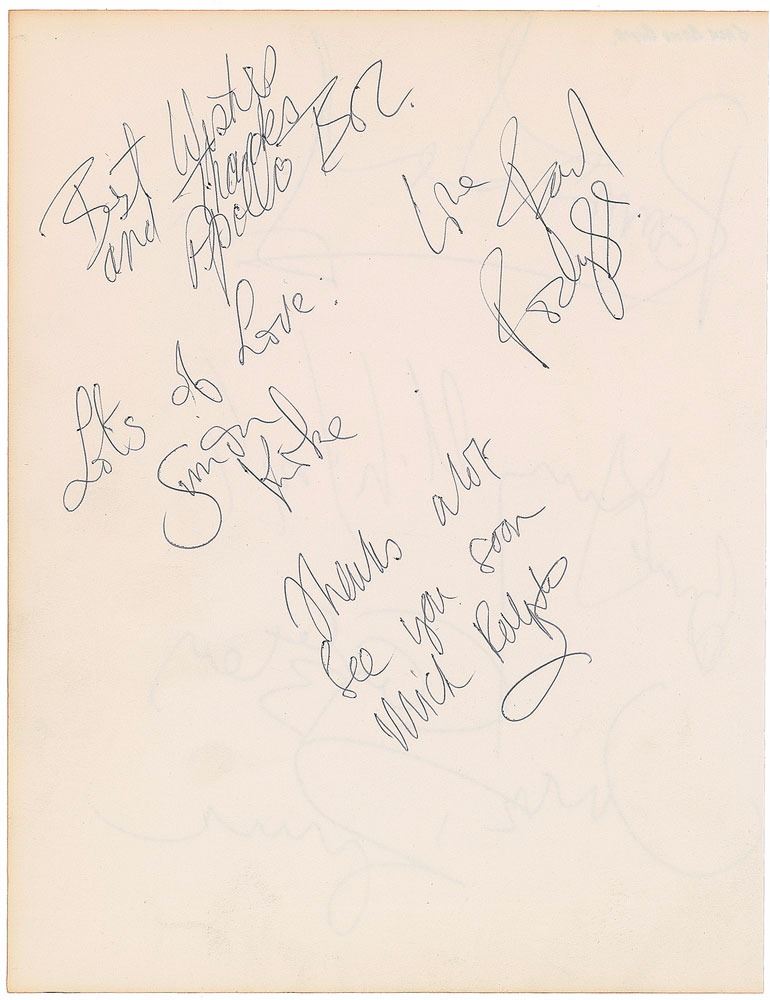 Best Wishes
and Thanks
Apollo Boz.
Love Paul
Rodgers.
Lots of Love.
Simon
Kirke
Thanks alot
See you soon
Mick Ralphs